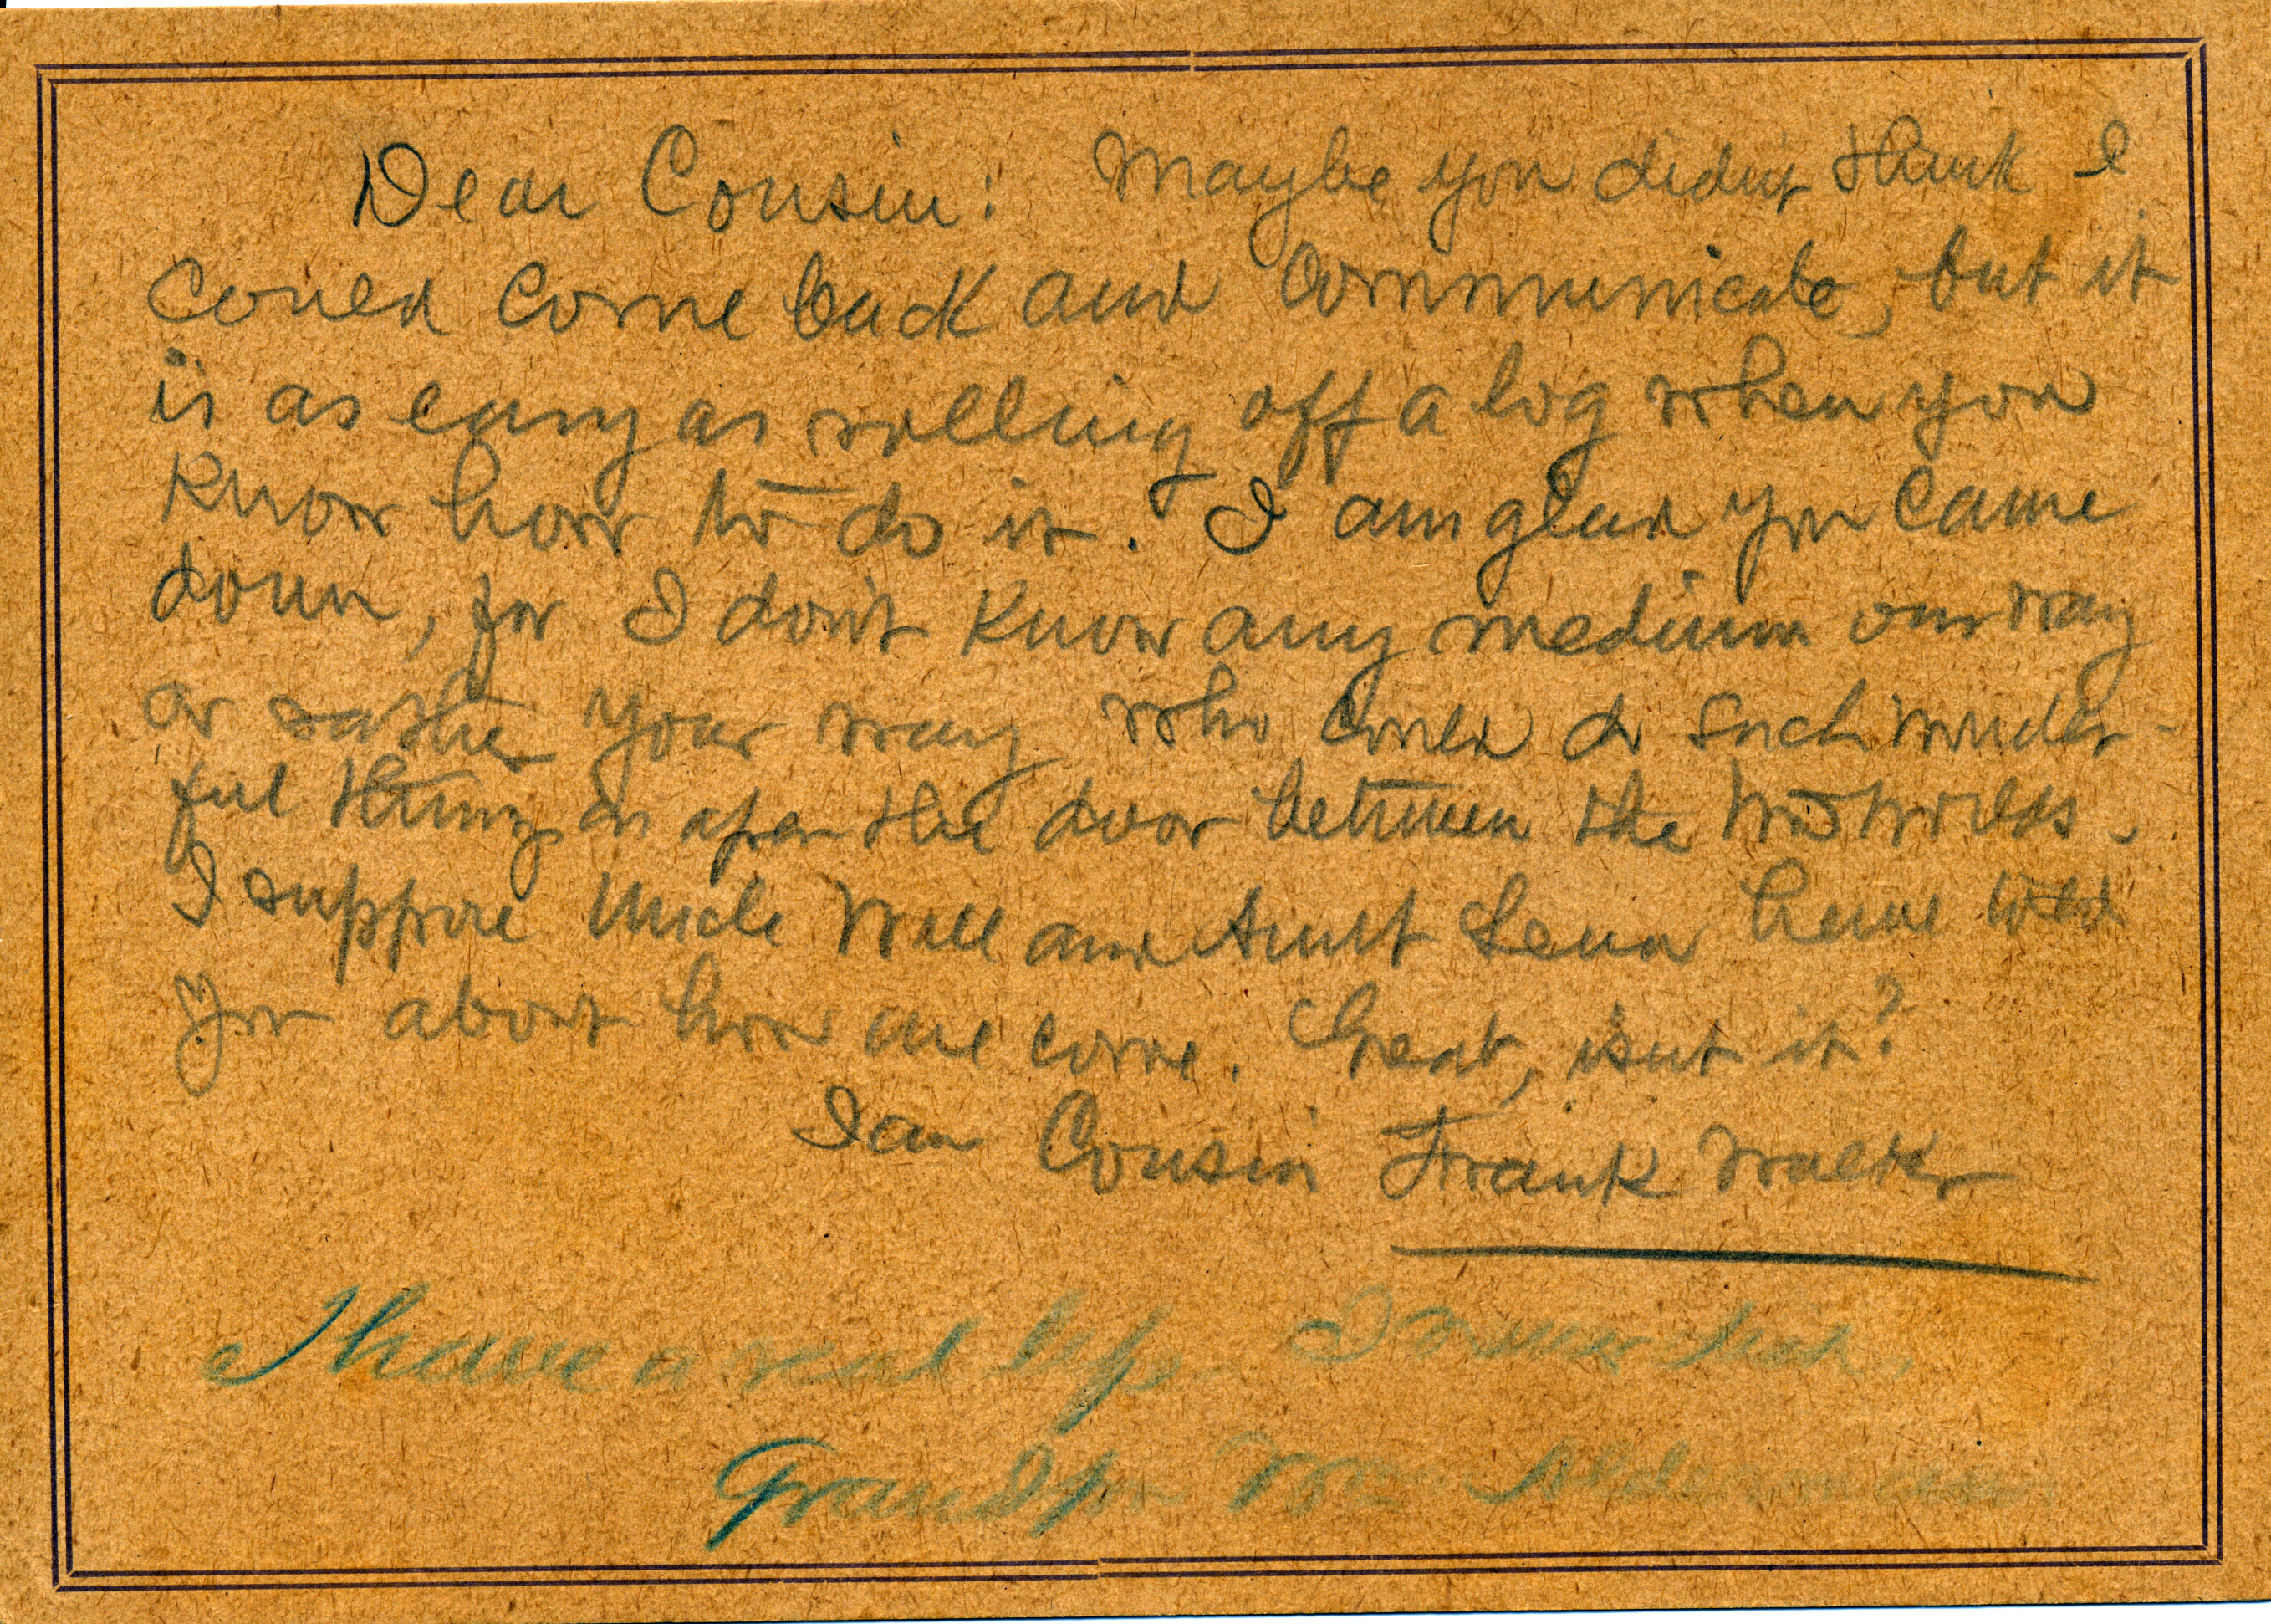 Dear Cousin: Maybe you didn't think I
could come back and communicate, but it
is as easy as rolling off a log when you
know how to do it. I am glad you came
down, for I don't know any medium our way
or rather your way who could do such wonder-
ful things as open the door between the two worlds.
I suppose Uncle Will and Aunt Lena have told
you about how we come. Great, isn't it?
I am Cousin Frank Walker
I have a real life. I never
Grandpa Wm Alderman